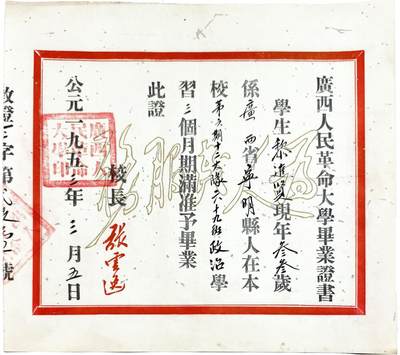 廣西人民革命大學畢業證書
學生黎進賢現年叁叁歲
係廣西省寧明縣人在本
校第六期十二大隊六十九班政治學
習三個月期滿准予畢業
此證
校長 張雲逸
公元一九五二年三月五日
為人民服務